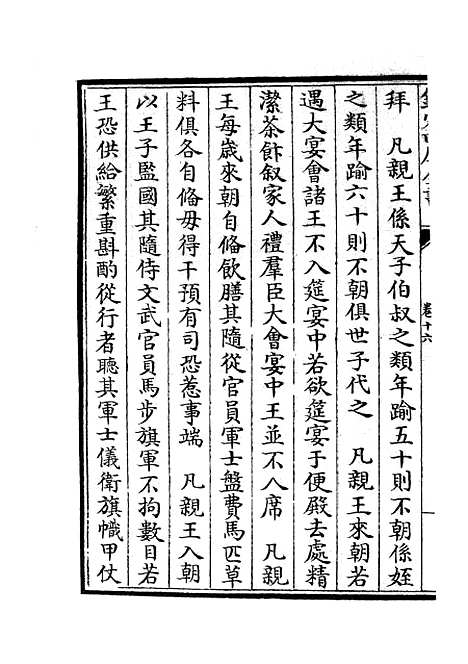 拜　凡親王係天子伯叔之類年踰五十則不朝係姪
之類年踰六十則不朝俱世子代之　凡親王來朝若
遇大宴會諸王不入筵宴中若欲筵宴于便殿去處精
潔茶飰叙家人禮羣臣大會宴中王並不入席　凡親
王每歳來朝自脩飲膳其隨從官員軍士盤費馬匹草
料俱各自脩毋得干預有司恐惹事端　凡親王入朝
以王子監國其隨侍文武官員馬步旗軍不拘數目若
王恐供給繁重斟酌從行者聽其軍士儀衛旗幟甲仗
卷十六